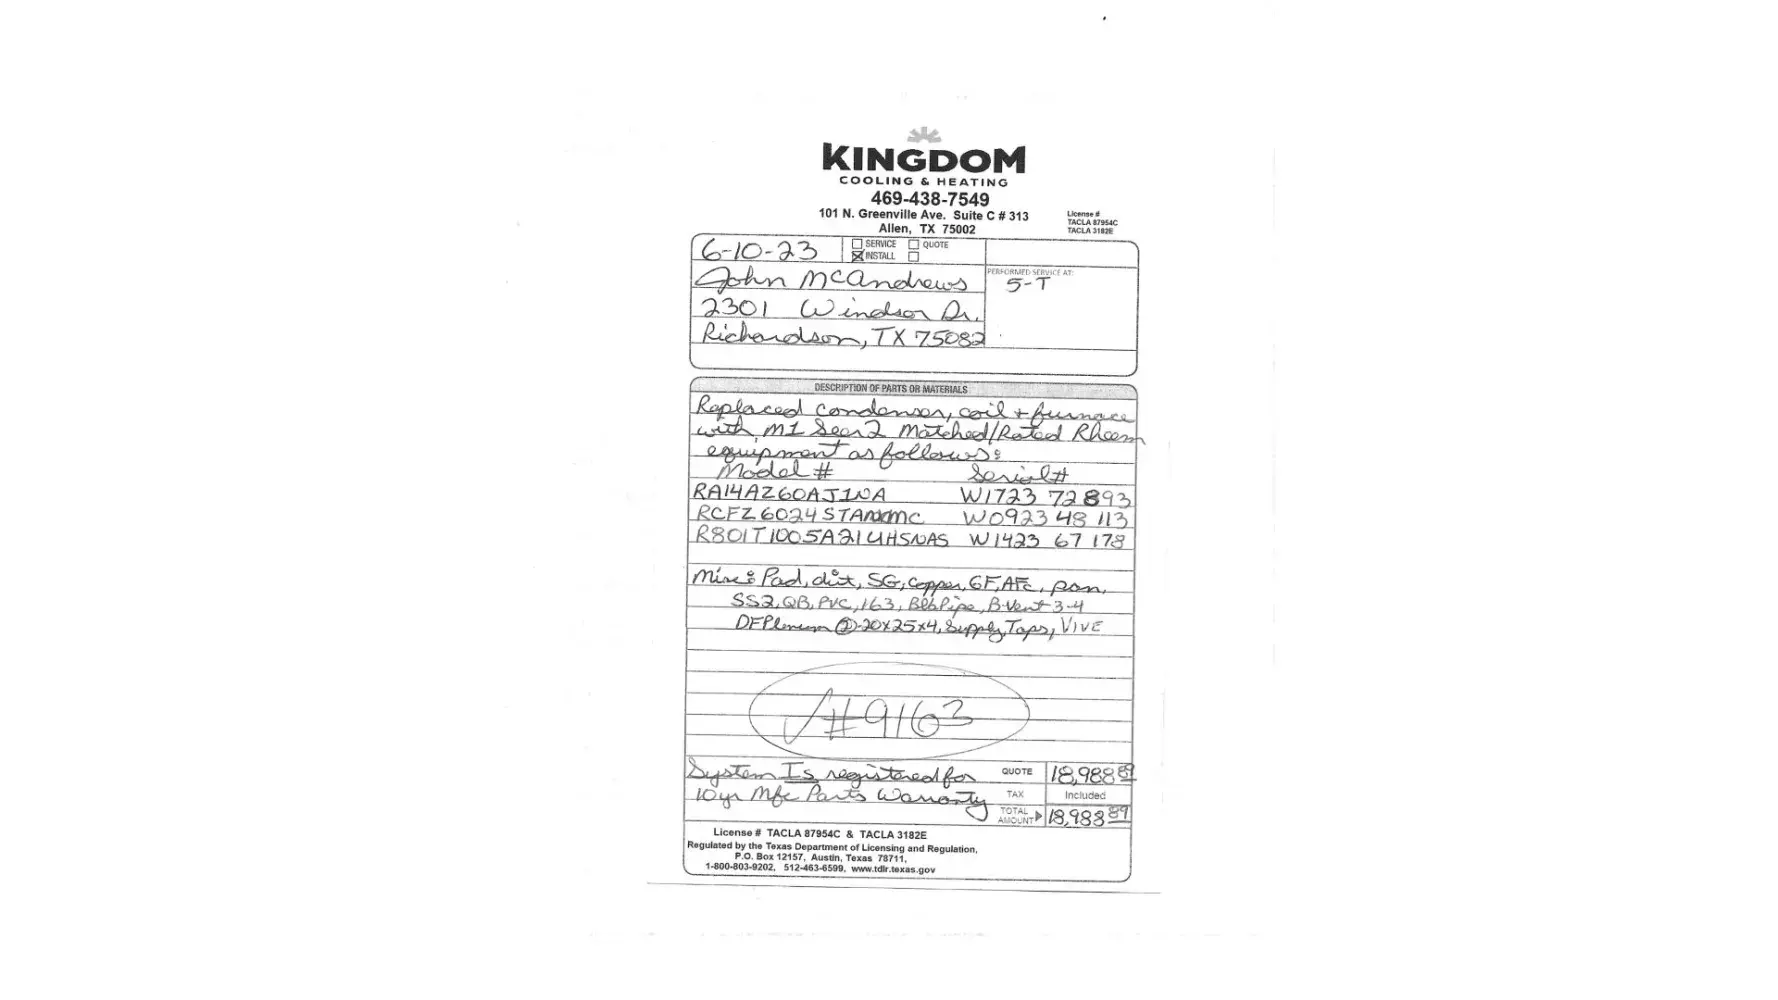 KINGDOM
COOLING & HEATING
469-438-7549
101 N. Greenville Ave. Suite C # 313
Allen, TX 75002
License #
TACLA 87954C
TACLA 3182E
6-10-23
SERVICE QUOTE
INSTALL
John McAndrews
2301 Windsor Dr.
Richardson, TX 75082
PERFORMED SERVICE AT:
5-T
DESCRIPTION OF PARTS OR MATERIALS
Replaced condenser, coil + furnace
with M1 Seer2 Matched/Rated Rheem
equipment as follows:
Model # Serial #
RA14AZ60AJ1NA W1723 72893
RCFZ6024STAMC W0923 48113
R801T1005A21UHSNAS W1423 67178
Misc: Pad, dirt, SG, copper, GF, AFc, pan,
SS2, QB, PVC, 163, Blk Pipe, B-Vent 3-4
DFPlenum @-20x25x4, Supply, Taps, VIVE
✓#9163
System Is registered for
10yr Mfc Parts Warranty
QUOTE 18,988 89
TAX Included
TOTAL AMOUNT 18,988 89
License # TACLA 87954C & TACLA 3182E
Regulated by the Texas Department of Licensing and Regulation,
P.O. Box 12157, Austin, Texas 78711,
1-800-803-9202, 512-463-6599, www.tdlr.texas.gov